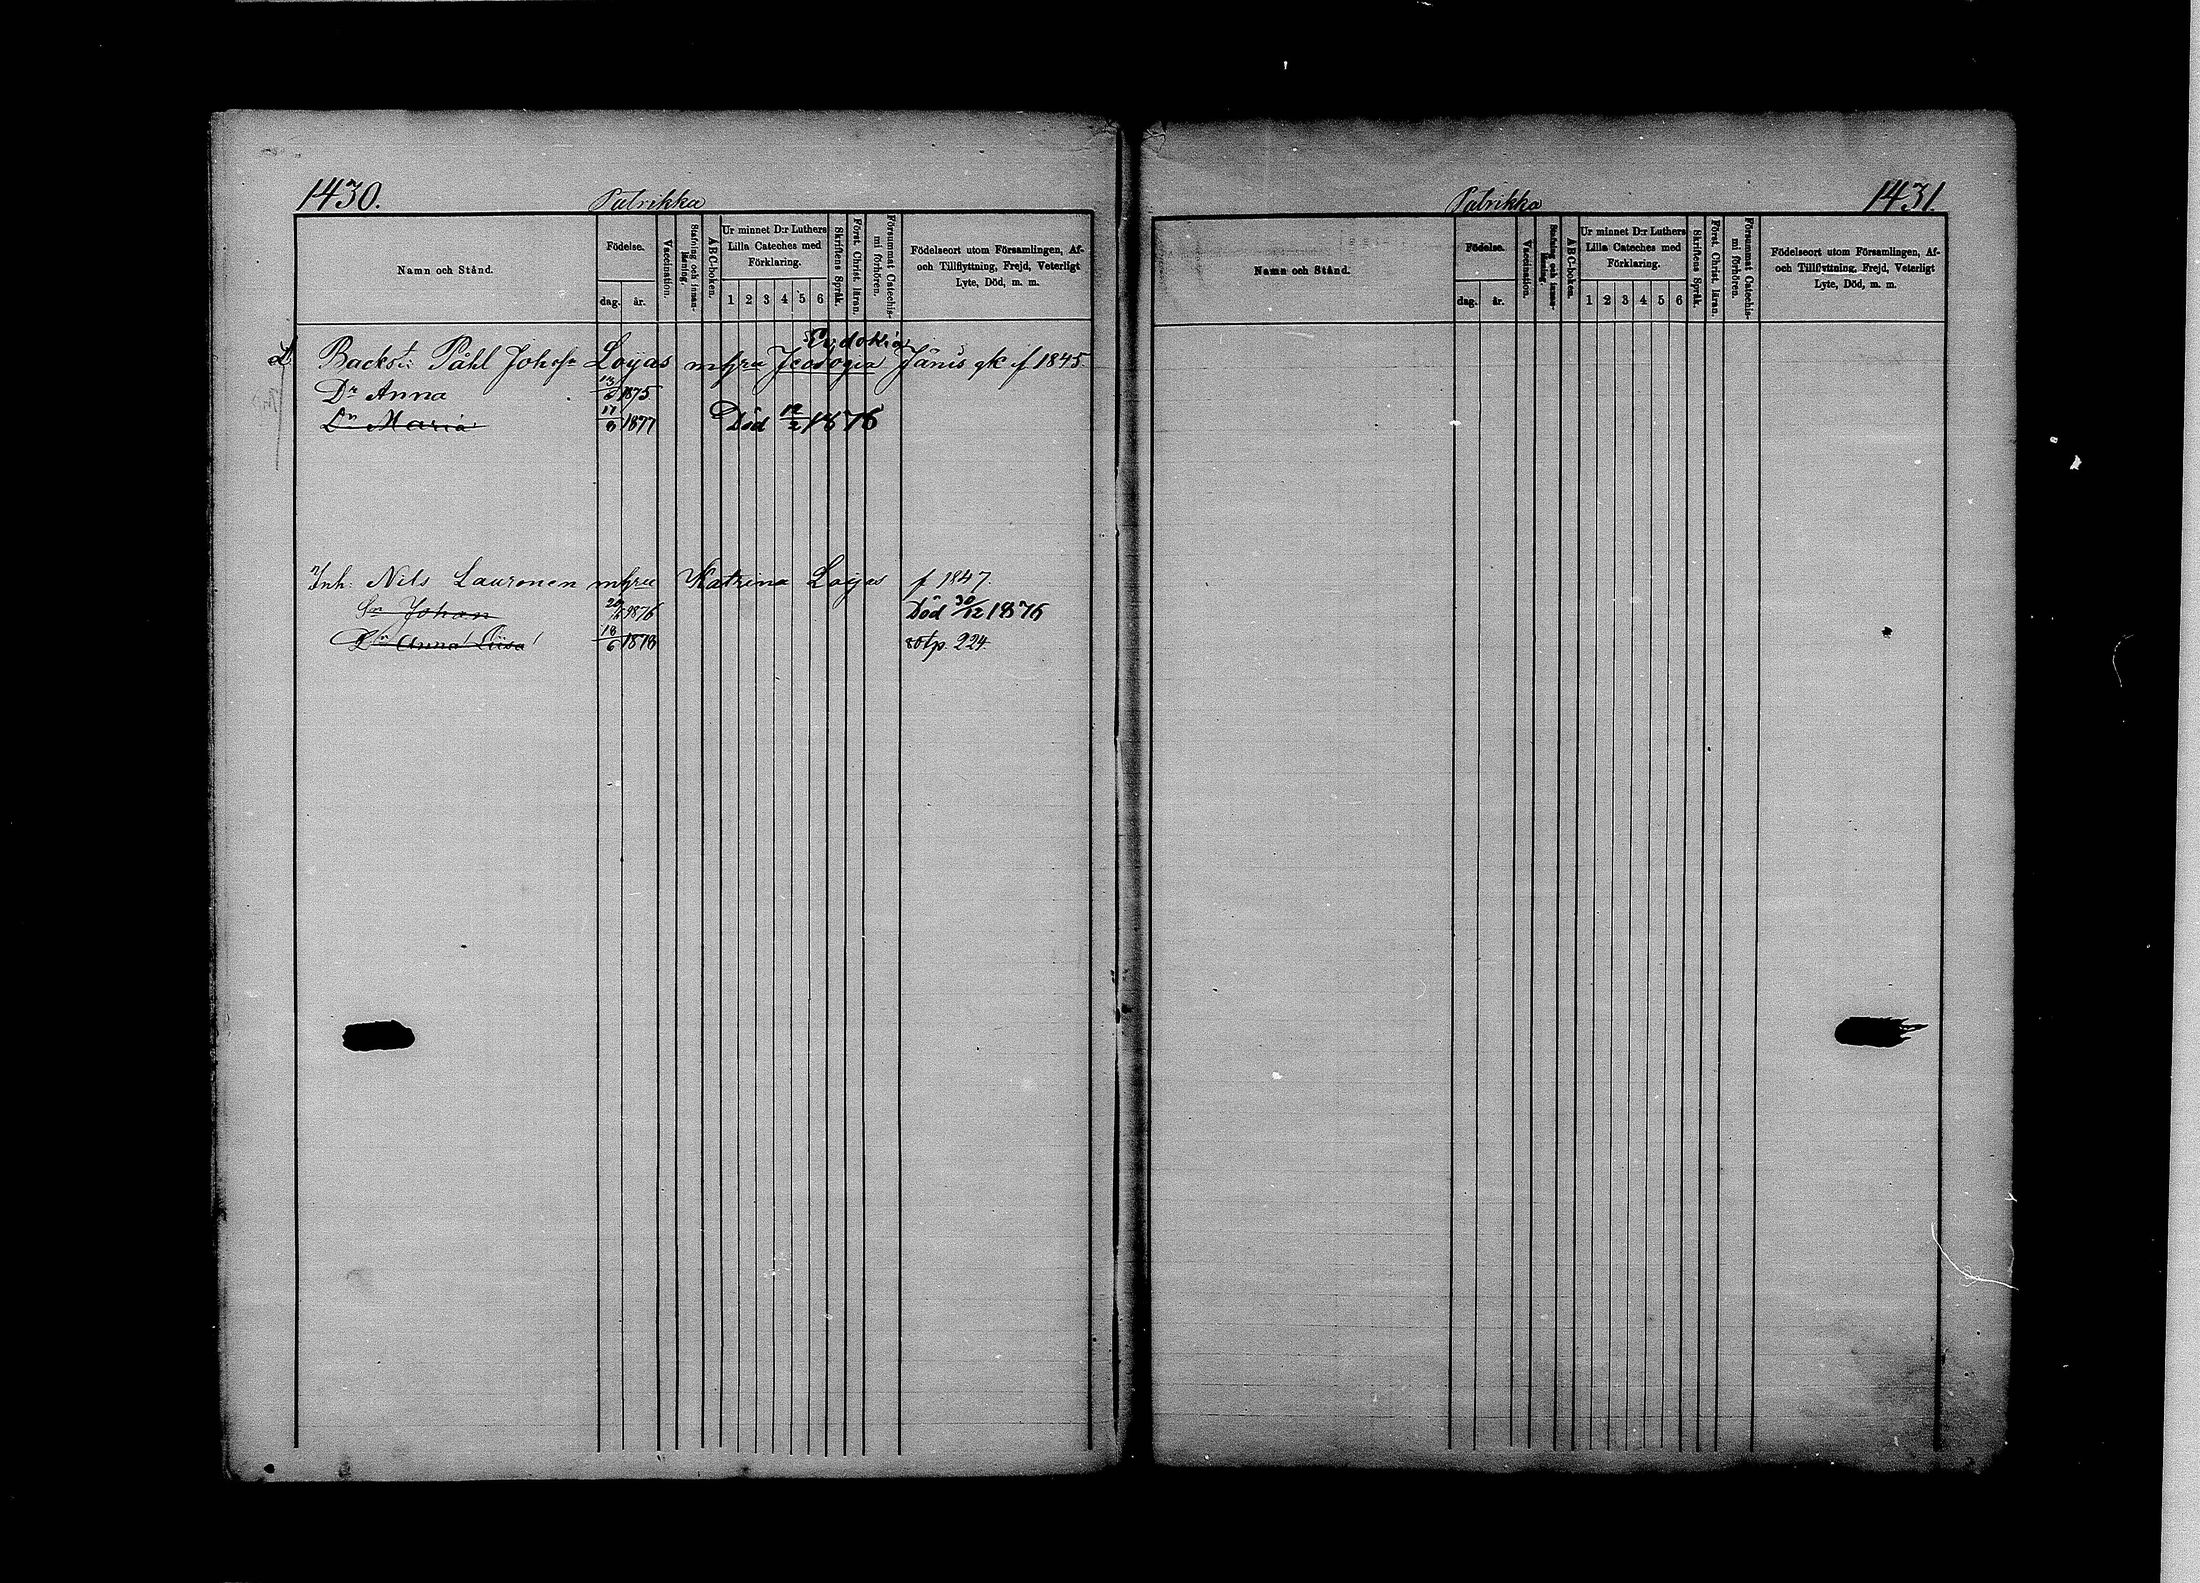 1430.
Patrikka
Namn och Stånd.
Födelse.
dag. år.
Vaccination.
Stafning och innanläsning.
ABC-boken.
Ur minnet D:r Luthers Lilla Cateches med Förklaring.
1 2 3 4 5 6
Skriftens Språk.
Först. Christ. läran.
Försummat Catechismi förhören.
Födelseort utom Församlingen, Af- och Tillflyttning, Frejd, Veterligt Lyte, Död, m. m.
Evdokia
Backst: Påhl Johsn Loyas m hru Feodogia Jänis gk f 1845.
Dr Anna 1875
Dr Maria 17/8 1877 Död 12/2 1878
Inh: Nils Lauronen m hru Katrina Loyas f 1847.
Sn Johan 1876 Död 30/12 1876
Dr Anna Liisa 18/6 1878 rotp. 224.
1431.
Patrikka
Namn och Stånd.
Födelse.
dag. år.
Vaccination.
Stafning och innanläsning.
ABC-boken.
Ur minnet D:r Luthers Lilla Cateches med Förklaring.
1 2 3 4 5 6
Skriftens Språk.
Först. Christ. läran.
Försummat Catechismi förhören.
Födelseort utom Församlingen, Af- och Tillflyttning, Frejd, Veterligt Lyte, Död, m. m.